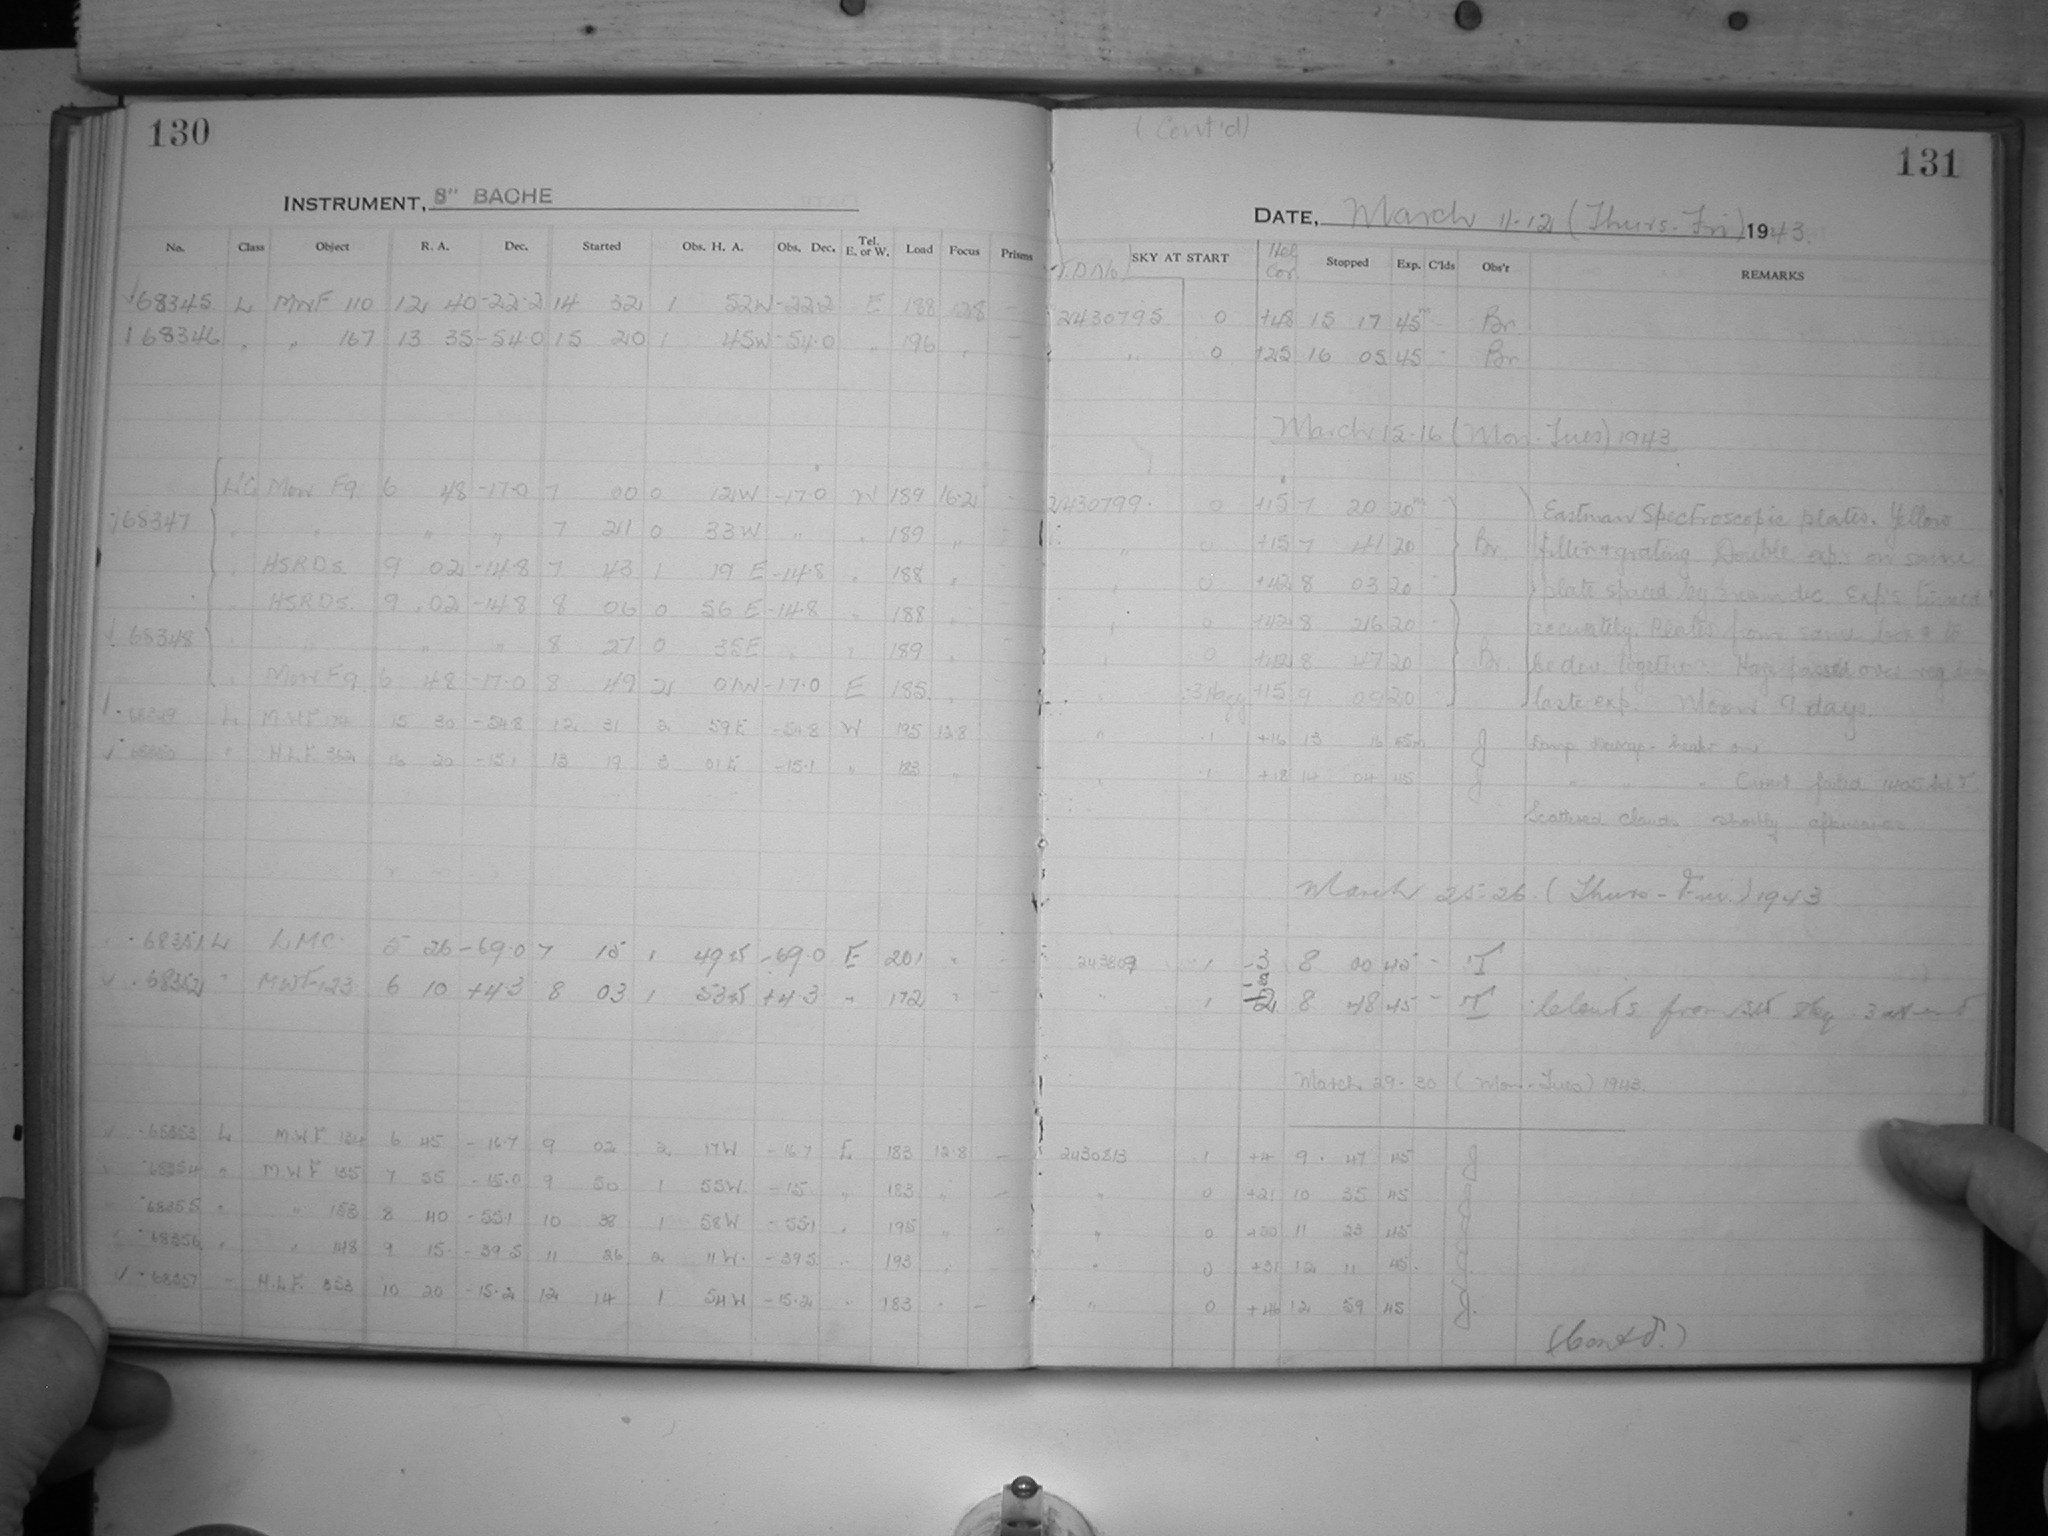 130
INSTRUMENT, 8" BACHE
No. Class Object R. A. Dec. Started Obs. H. A. Obs. Dec. Tel. E. or W. Load Focus Prisms
68345 L MWF 110 12 40 -22.2 14 32 1 52W -22.2 E 188 12.8 -
68346 " " 167 13 35 -54.0 15 20 1 45W -54.0 " 196 " -
LC Mon F9 6 48 -17.0 7 00 0 12W -17.0 W 189 16.2 -
68347 " " " " 7 21 0 33W " " 189 "
" HSRDS. 9 02 -14.8 7 43 1 19 E -14.8 " 188 "
" HSRDS. 9 02 -14.8 8 06 0 56 E -14.8 " 188 "
68348 " " " " 8 27 0 35E " " 189 "
" Mon F9 6 48 -17.0 8 49 2 01W -17.0 E 185 "
68349 L MWF 15 30 -54.8 12 31 2 59E -54.8 W 195 12.8
68350 " H.L.F. 362 16 20 -15.1 13 19 3 01E -15.1 " 183 "
68351 L LMC. 5 26 -69.0 7 15 1 49 -69.0 E 201 " -
68352 " MWF 123 6 10 +4.3 8 03 1 53 +4.3 " 172 " -
68353 L M.W.F. 6 45 -16.7 9 02 2 17W -16.7 E 183 12.8 -
68354 " MWF 135 7 55 -15.0 9 50 1 55W -15 " 183 " -
68355 " " 158 8 40 -55.1 10 38 1 58W -55.1 " 195 " -
68356 " " 148 9 15 -39.5 11 26 2 11W -39.5 " 193
68357 " H.L.F. 353 10 20 -15.2 12 14 1 54W -15.2 " 183 " -
(Cont'd)
131
DATE, March 11-12 (Thurs-Fri) 1943
SKY AT START Hel Cor. Stopped Exp. C'lds Obs'r REMARKS
2430795 0 +48 15 17 45m - Br
" 0 +25 16 05 45 - Br
March 15-16 (Mon-Tues) 1943
2430799 0 +15 7 20 20m Eastman Spectroscopic plates. Yellow
" 0 +15 7 41 20 Br. filter + grating. Double exp's on same
" 0 +42 8 03 20 plate spaced by in dec. Exp's timed
" 0 +42 8 26 20 accurately. Plates from same box & to
" 0 +42 8 47 20 Br. be dev. together. Haze passed over
" 3 Hazy +15 9 09 20 last exp. Moon 9 days.
" 1 +16 13 16 45m J Damp
" 1 +18 14 04 45 J " " " Current failed 1405
Scattered clouds shortly afterwards
March 25-26 (Thurs-Fri.) 1943
243809 1 -3 8 00 45 - T
" 1 8 48 45 - T Clouds from
March 29-30 (Mon-Tues) 1943.
2430813 1 +4 9 47 45 J
" 0 +21 10 35 45
" 0 +30 11 23 45
" 0 +31 12 11 45
" 0 +46 12 59 45 J.
(Cont'd.)